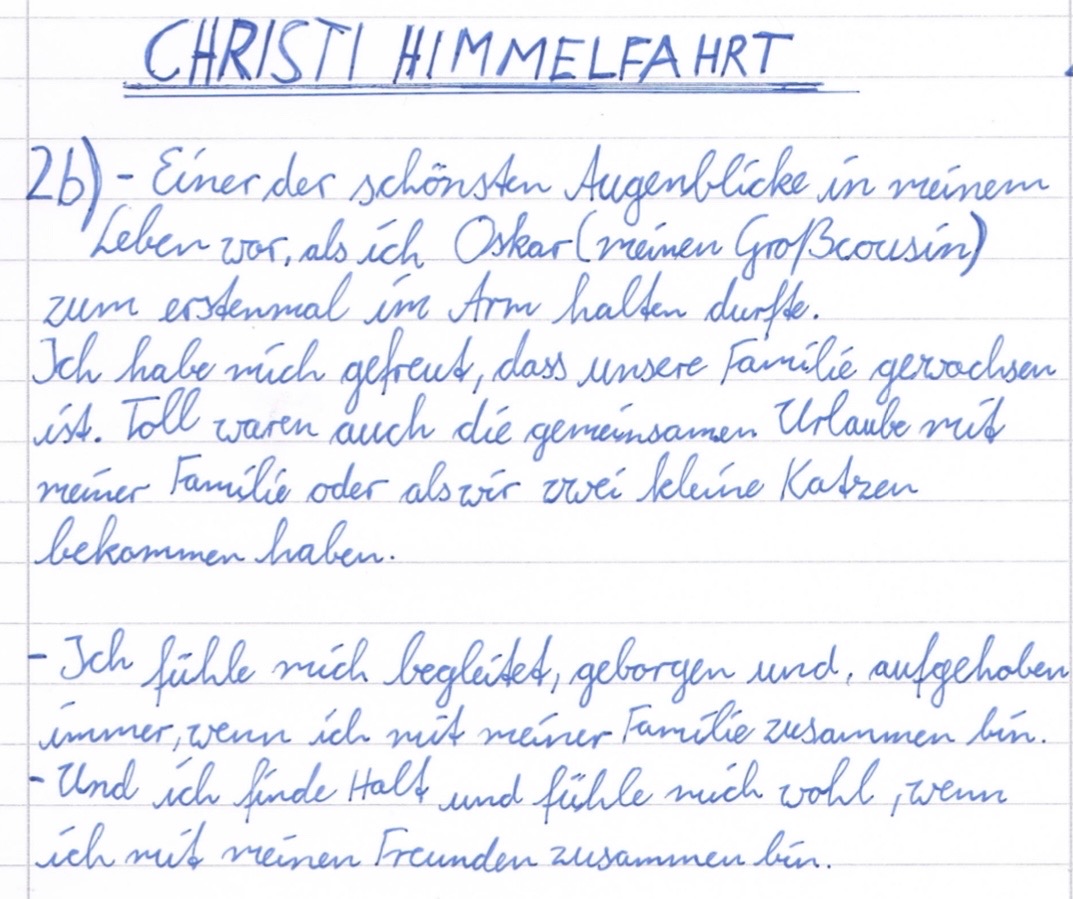 CHRISTI HIMMELFAHRT
2b) - Einer der schönsten Augenblicke in meinem
Leben war, als ich Oskar (meinen Großcousin)
zum erstenmal im Arm halten durfte.
Ich habe mich gefreut, dass unsere Familie gewachsen
ist. Toll waren auch die gemeinsamen Urlaube mit
meiner Familie oder als wir zwei kleine Katzen
bekommen haben.
- Ich fühle mich begleitet, geborgen und, aufgehoben
immer, wenn ich mit meiner Familie zusammen bin.
- Und ich finde Halt und fühle mich wohl, wenn
ich mit meinen Freunden zusammen bin.